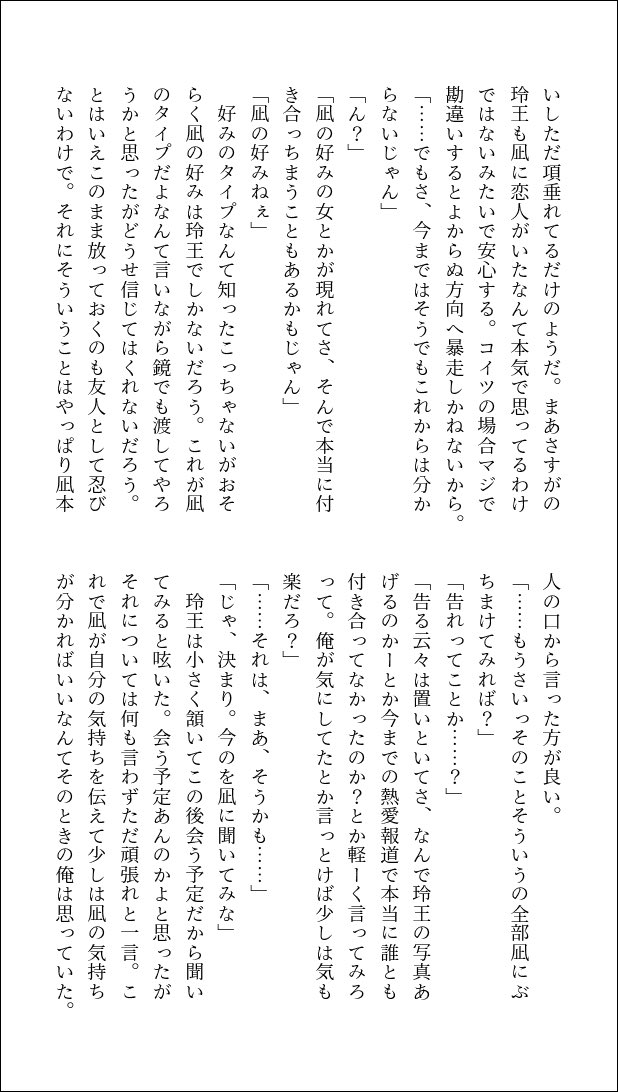 いしただ項垂れてるだけのようだ。まあさすがの
玲王も凪に恋人がいたなんて本気で思ってるわけ
ではないみたいで安心する。コイツの場合マジで
勘違いするとよからぬ方向へ暴走しかねないから。
「……でもさ、今まではそうでもこれからは分か
らないじゃん」
「ん？」
「凪の好みの女とかが現れてさ、そんで本当に付
き合っちまうこともあるかもじゃん」
「凪の好みねぇ」
　好みのタイプなんて知ったこっちゃないがおそ
らく凪の好みは玲王でしかないだろう。これが凪
のタイプだよなんて言いながら鏡でも渡してやろ
うかと思ったがどうせ信じてはくれないだろう。
とはいえこのまま放っておくのも友人として忍び
ないわけで。それにそういうことはやっぱり凪本
人の口から言った方が良い。
「……もうさいっそのことそういうの全部凪にぶ
ちまけてみれば？」
「告れってことか……？」
「告る云々は置いといてさ、なんで玲王の写真あ
げるのかーとか今までの熱愛報道で本当に誰とも
付き合ってなかったのか？とか軽ーく言ってみろ
って。俺が気にしてたとか言っとけば少しは気も
楽だろ？」
「……それは、まあ、そうかも……」
「じゃ、決まり。今のを凪に聞いてみな」
　玲王は小さく頷いてこの後会う予定だから聞い
てみると呟いた。会う予定あんのかよと思ったが
それについては何も言わずただ頑張れと一言。こ
れで凪が自分の気持ちを伝えて少しは凪の気持ち
が分かればいいなんてそのときの俺は思っていた。